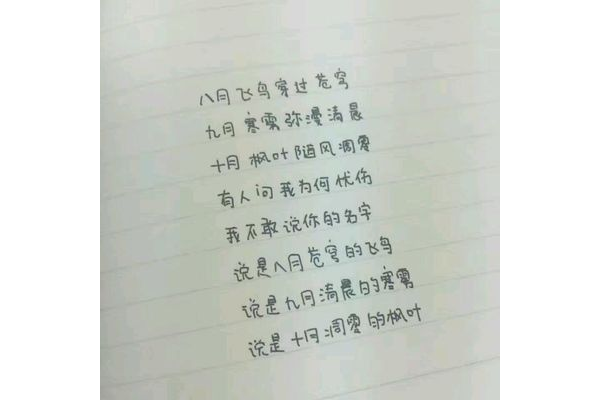 八月飞鸟穿过苍穹
九月寒雾弥漫清晨
十月枫叶随风凋零
有人问我为何忧伤
我不敢说你的名字
说是八月苍穹的飞鸟
说是九月清晨的寒雾
说是十月凋零的枫叶